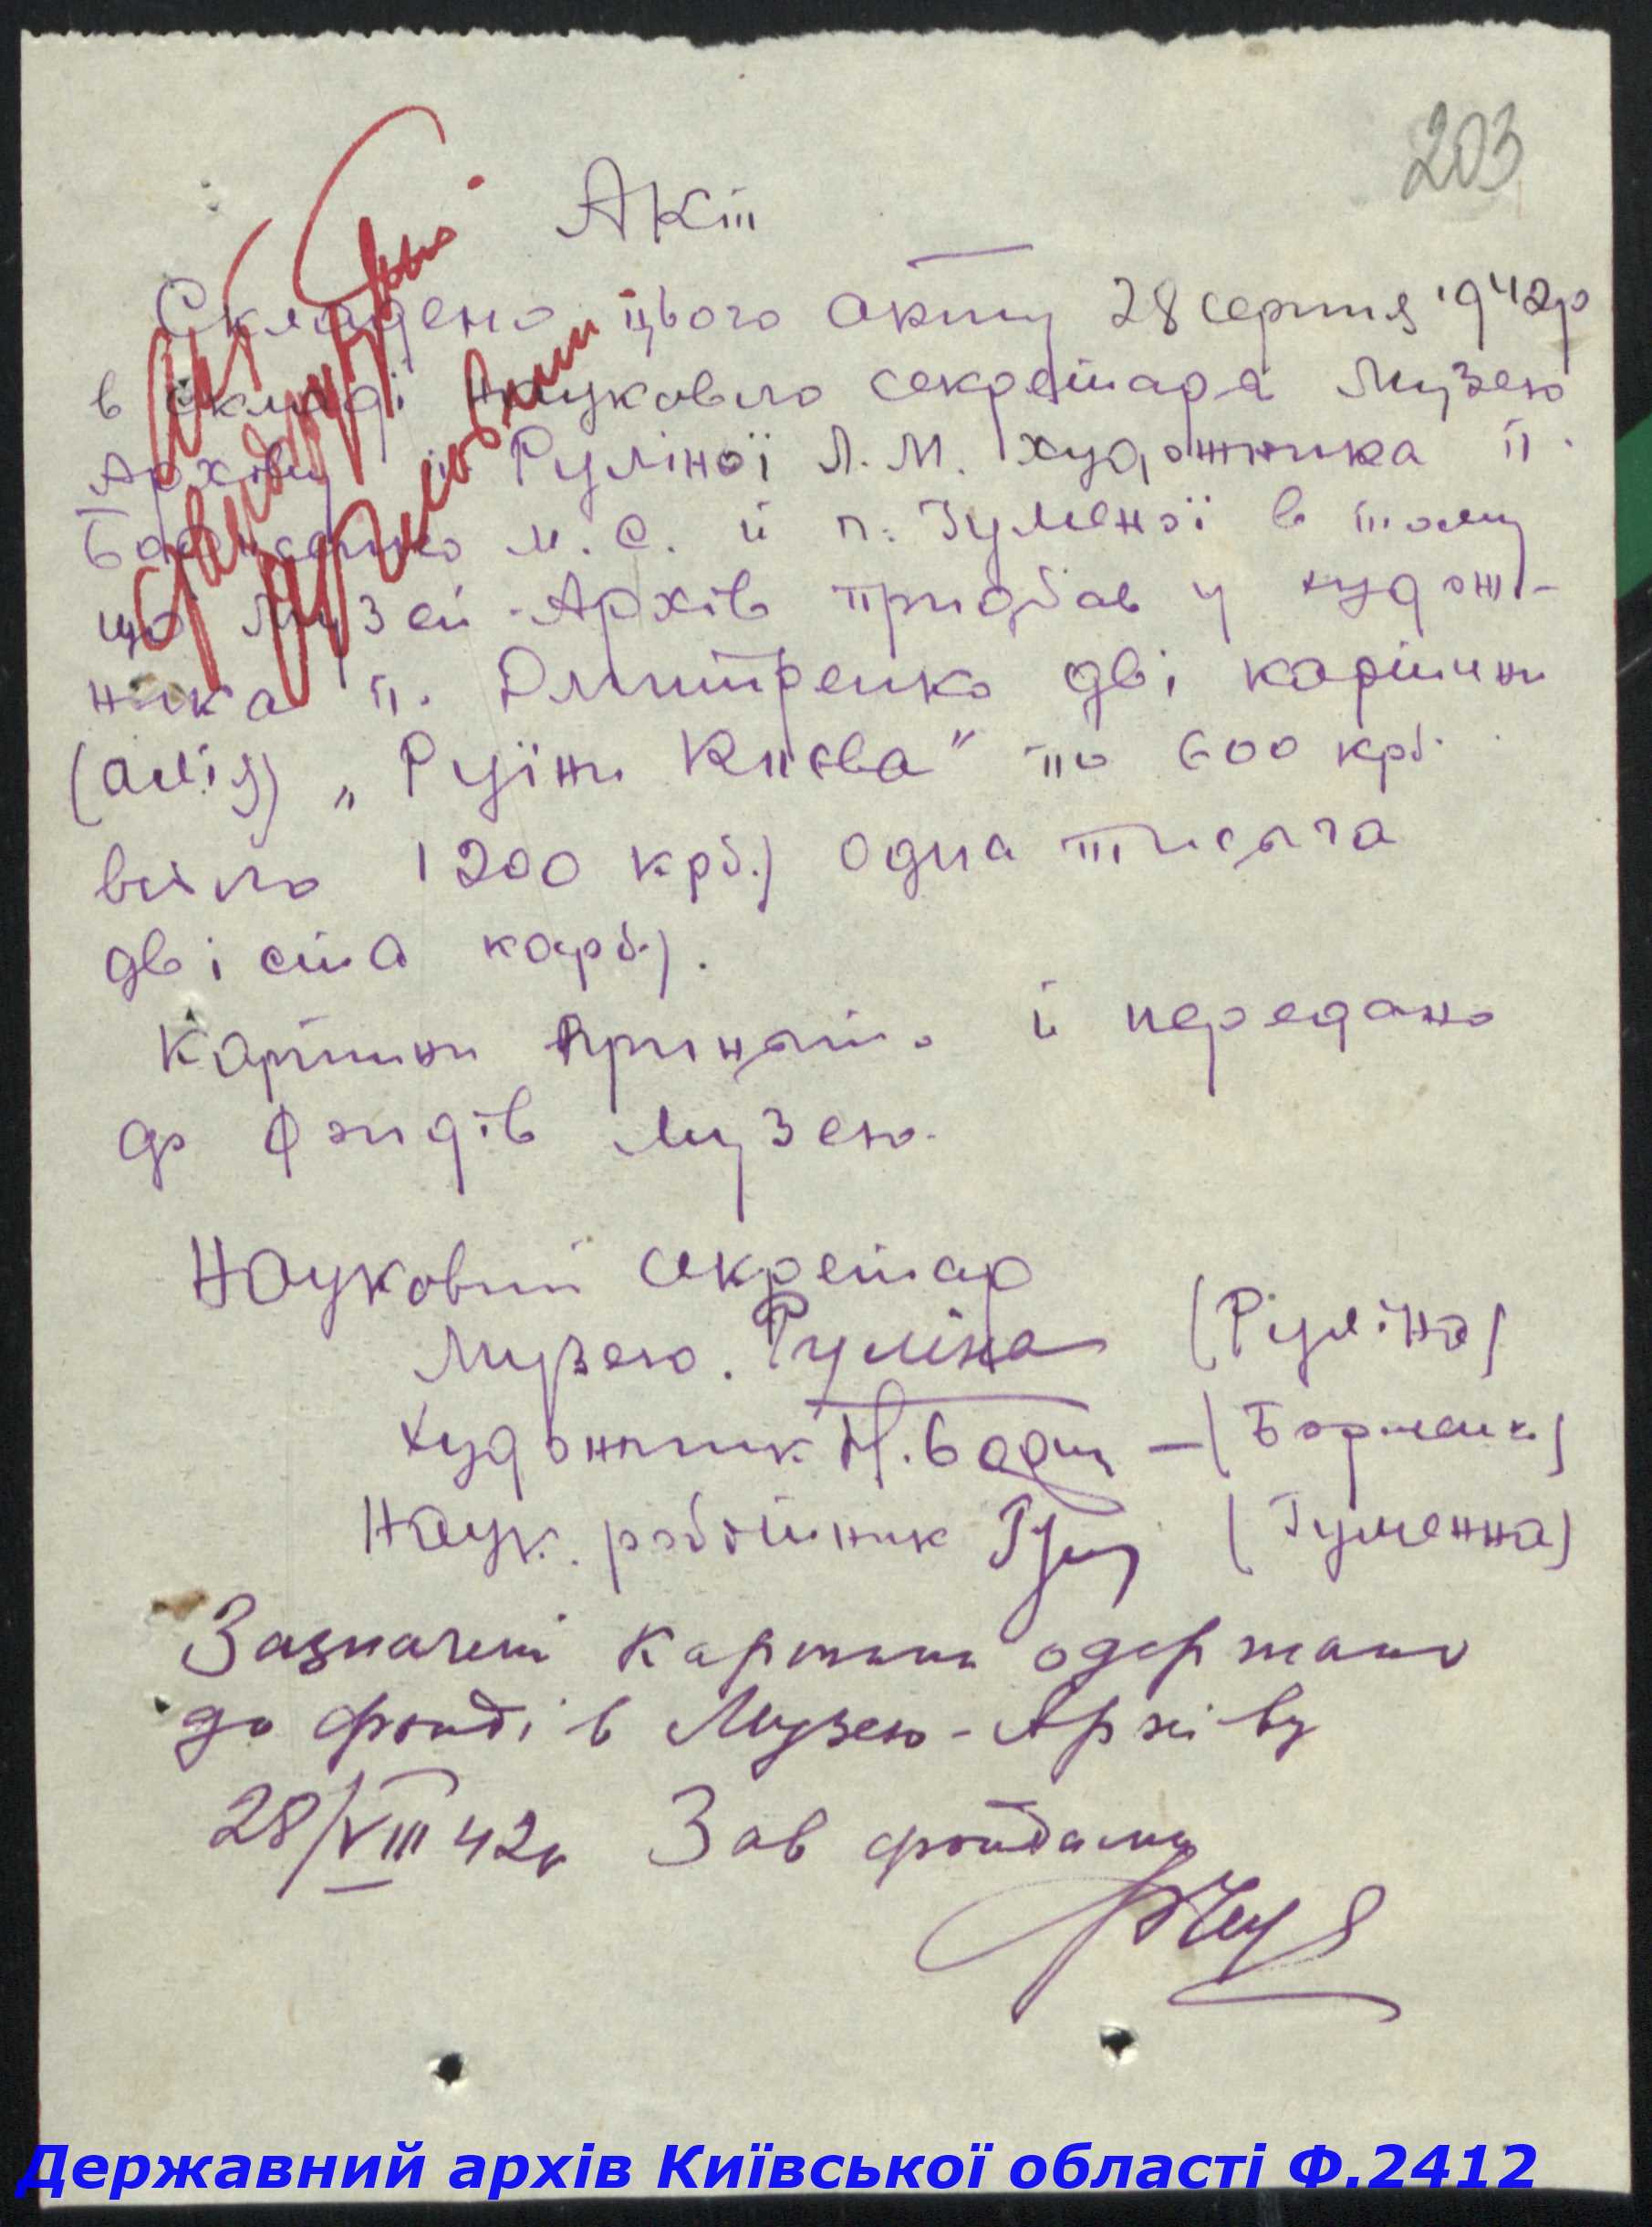 203
Акт
Складено цього акту 28 серпня 1942р
в складі наукового секретаря Музею
Архіву Руліної Л.М. художника п.
М.С. й п. Гуменої в тому
що Музей-Архів придбав у худож-
ника п. Дмитренко дві картини
(олія) „Руїни Києва" по 600 крб.
всього 1200 крб.) одна тисяча
двіста карб).
Картини принято й передано
до фондів Музею.
Науковий секретар
Музею. Руліна (Руліна)
художник Н.
Наук. робітник Гум (Гуменна)
Зазначені картини одержано
до фондів Музею-Архіву
28/VIII 42р Зав фондами
Державний архів Київської області Ф.2412